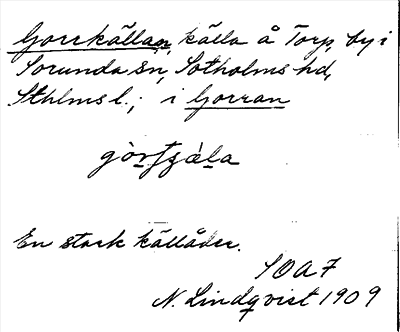 Gorrkällan, källa å Torp, by i
Sorunda sn, Sotholms hd,
Sthlms l.; i Gorran
En stark källåder.
SOA 7
N. Lindqvist 1909